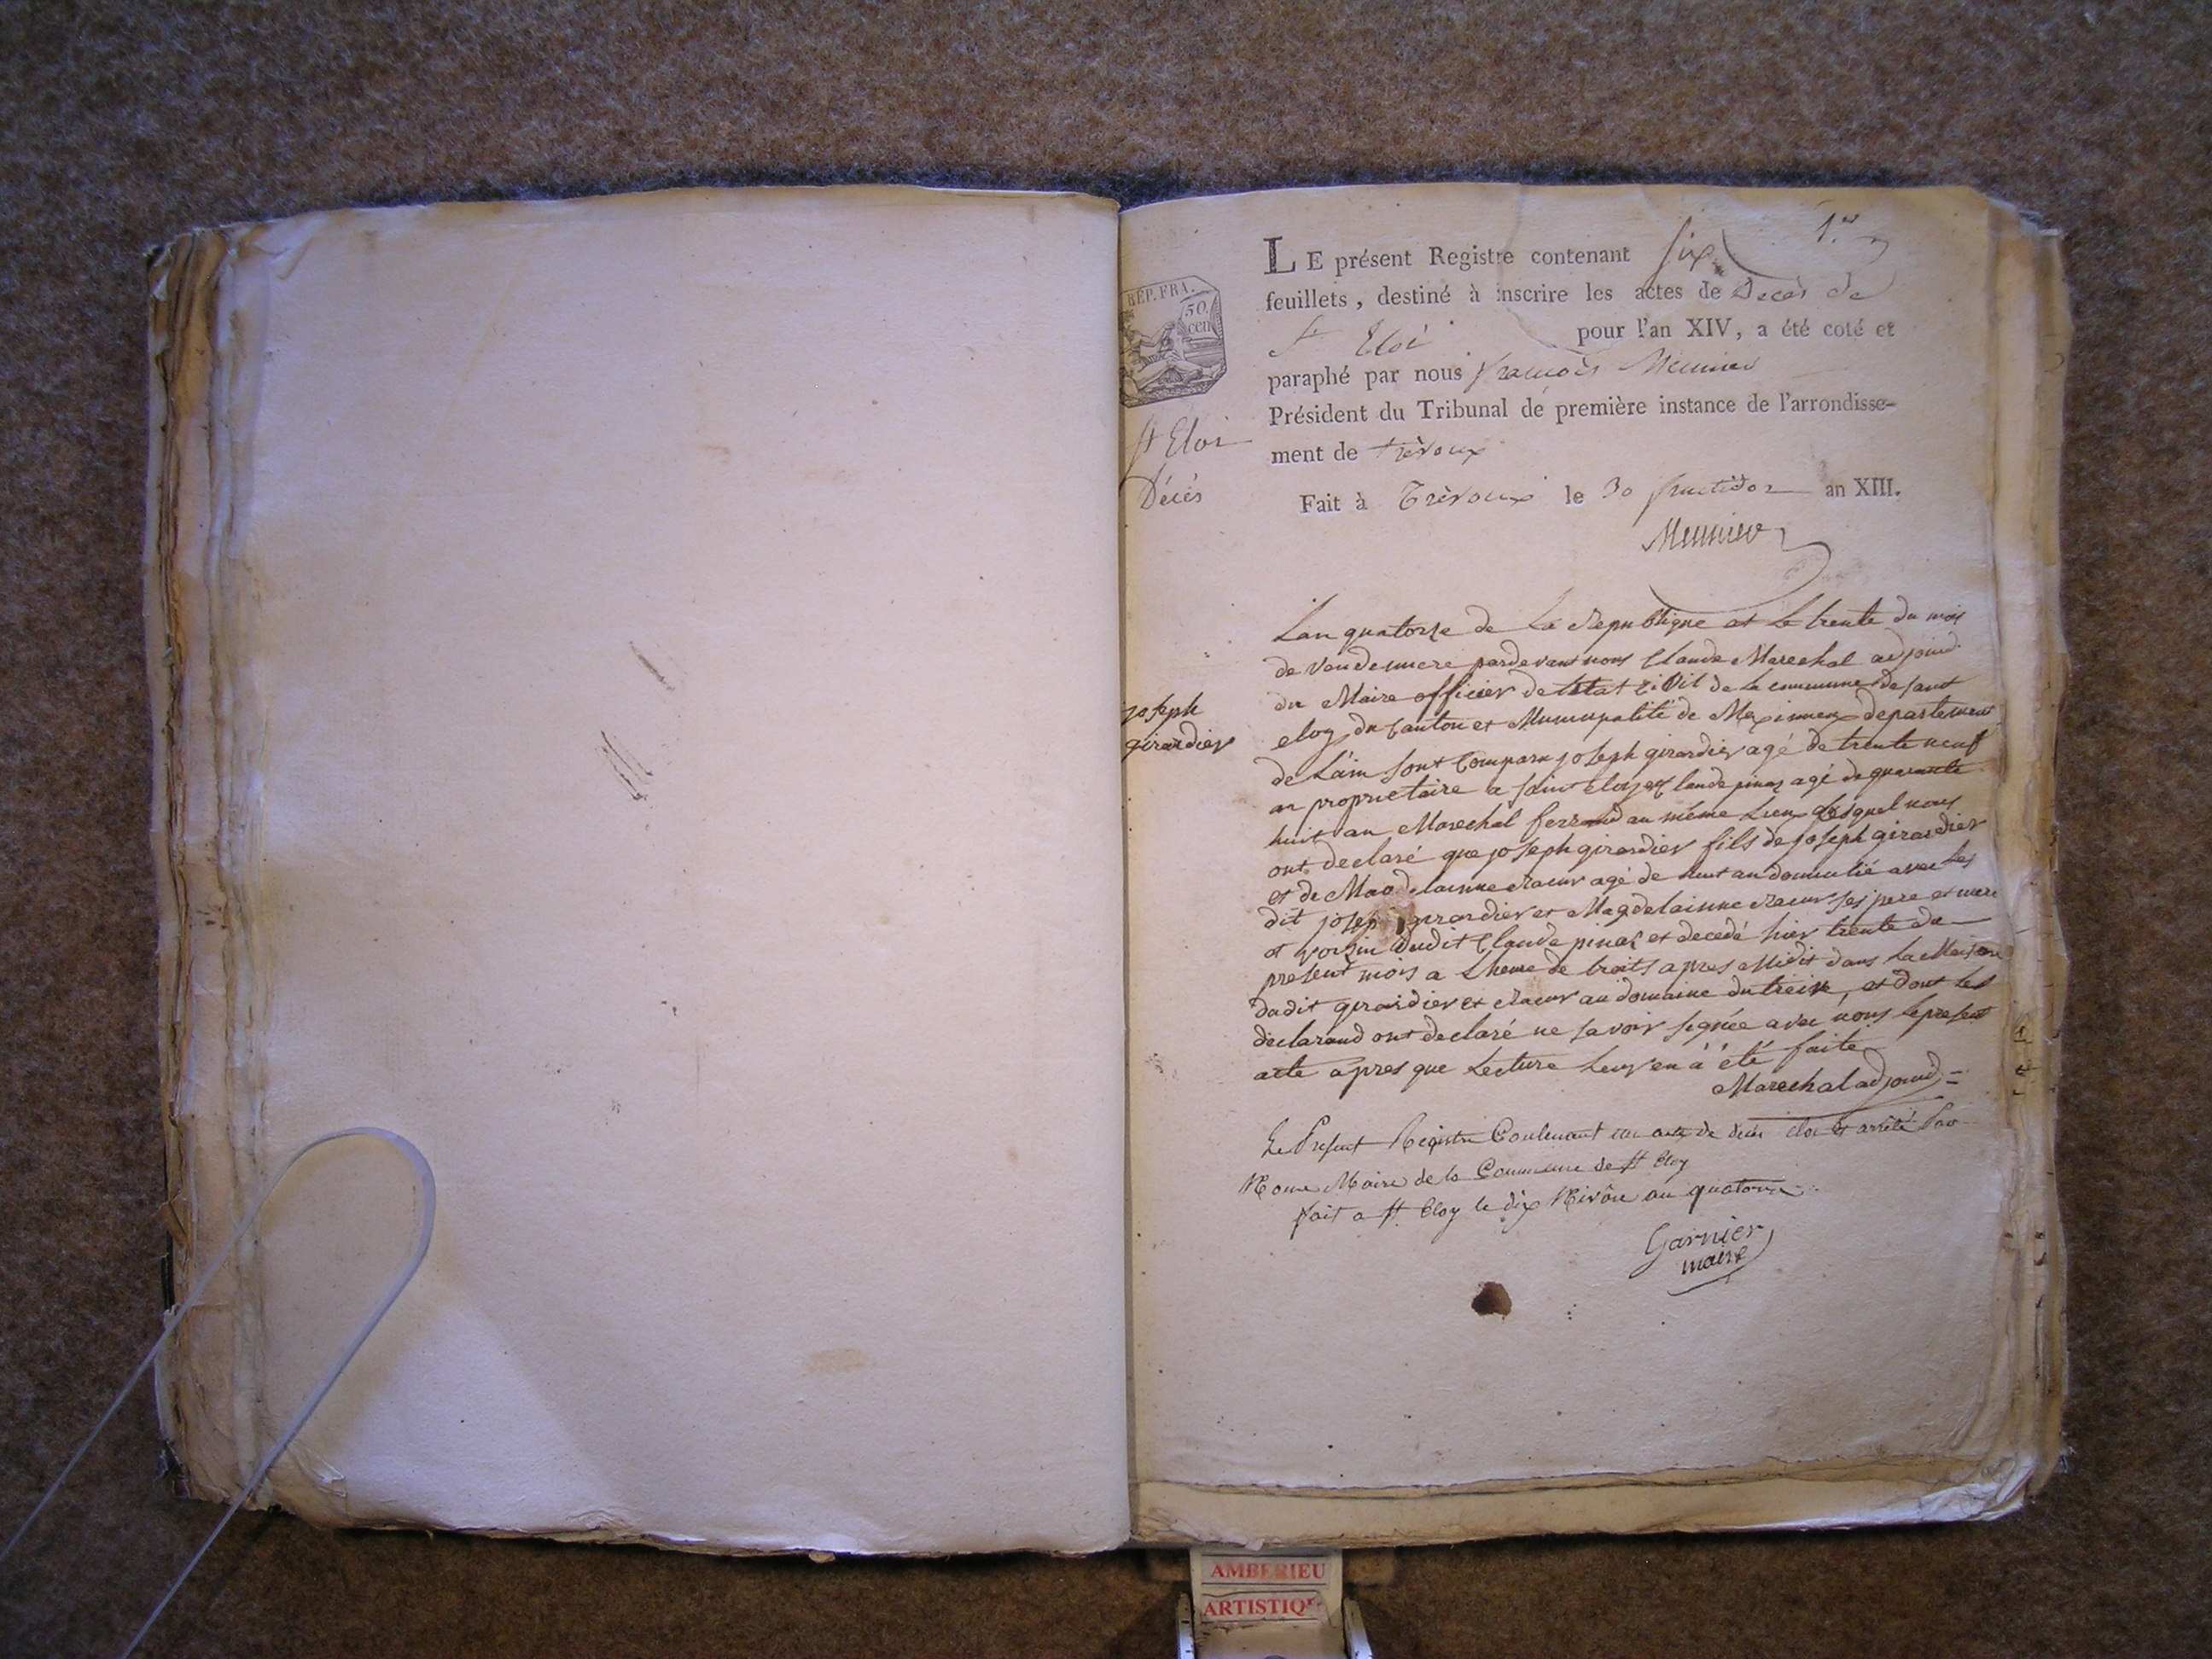 1.er
LE présent Registre contenant six
feuillets, destiné à inscrire les actes de Deces de
St Eloi pour l'an XIV, a été coté et
paraphé par nous françois Meunier
Président du Tribunal de première instance de l'arrondisse-
ment de trévoux
Fait à Trévoux le 30 fructidor an XIII.
Meunier
RÉP. FRA.
50.
cen
St Eloi
Décés
joseph
girardier
Lan quatorze de La Republique et Le trente du mois
de vendemiere pardevant nous Claude Marechal adjoind
du Maire officier de letat civil de la commune de saint
eloy du Canton et Municipalité de Meximieux departement
de Lain sont Comparu joseph girardier agé de trente neuf
an proprietaire a saint eloy et Claude pinaz agé de quarante
huit an Marechal ferrand au même Lieux Lesquel nous
ont declaré que joseph girardier fils de joseph girardier
et de Magdelainne agé de huit an domicilié avec les
dit joseph girardier et Magdelainne ses pere et mere
et voizin dudit Claude pinaz et decedé hier trente du
present mois a Lheure de troits apres Midit dans La Maison
dudit girardier et au domaine du et dont les
declarand ont declaré ne savoir signée avec nous le present
acte apres que Lecture Leur en à été faite
Marechal adjoind
Le Present Registre Contenant un acte de décés clos et arrêté Par
Nous Maire de la Commune de St Eloy
fait a St Eloy le dix Nivôse an quatorze
Garnier
maire
AMBERIEU
ARTISTIQ